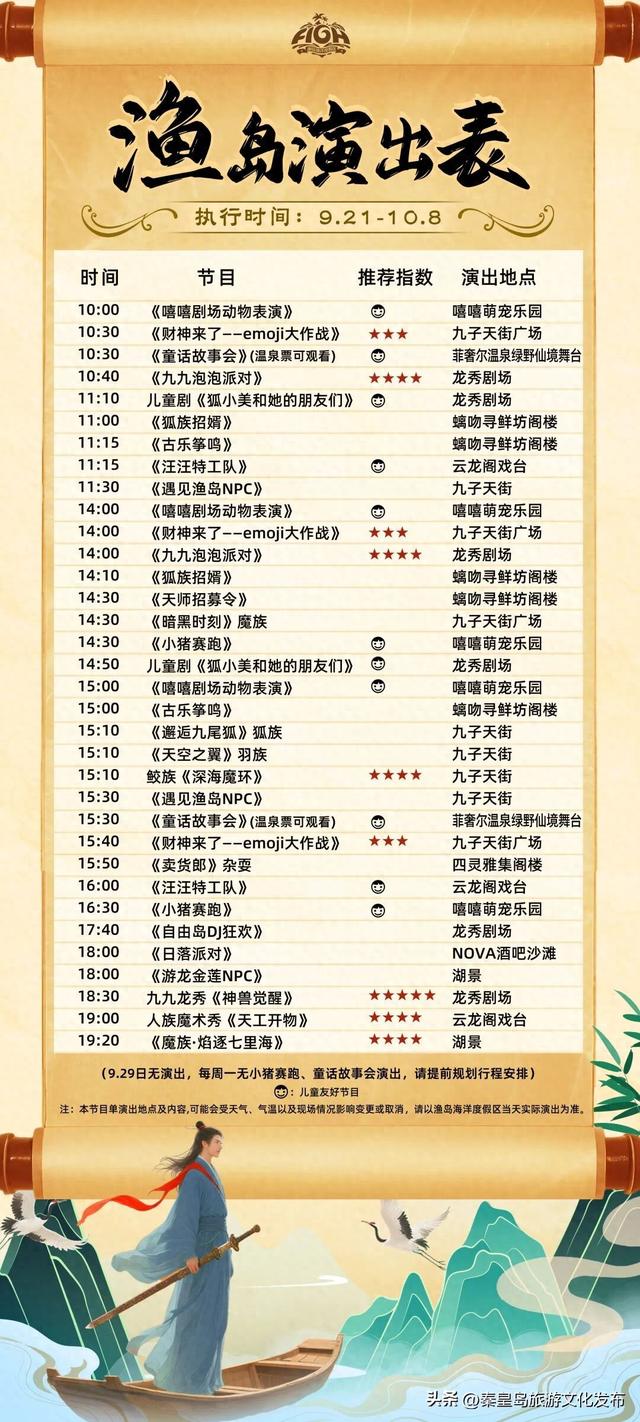 FIGH
渔岛演出表
执行时间：9.21-10.8
时间 节目 推荐指数 演出地点
10:00 《嘻嘻剧场动物表演》 嘻嘻萌宠乐园
10:30 《财神来了——emoji大作战》 ★★★ 九子天街广场
10:30 《童话故事会》(温泉票可观看) 菲奢尔温泉绿野仙境舞台
10:40 《九九泡泡派对》 ★★★★ 龙秀剧场
11:10 儿童剧《狐小美和她的朋友们》 龙秀剧场
11:00 《狐族招婿》 螭吻寻鲜坊阁楼
11:15 《古乐筝鸣》 螭吻寻鲜坊阁楼
11:15 《汪汪特工队》 云龙阁戏台
11:30 《遇见渔岛NPC》 九子天街
14:00 《嘻嘻剧场动物表演》 嘻嘻萌宠乐园
14:00 《财神来了——emoji大作战》 ★★★ 九子天街广场
14:00 《九九泡泡派对》 ★★★★ 龙秀剧场
14:10 《狐族招婿》 螭吻寻鲜坊阁楼
14:30 《天师招募令》 螭吻寻鲜坊阁楼
14:30 《暗黑时刻》魔族 九子天街广场
14:30 《小猪赛跑》 嘻嘻萌宠乐园
14:50 儿童剧《狐小美和她的朋友们》 龙秀剧场
15:00 《嘻嘻剧场动物表演》 嘻嘻萌宠乐园
15:00 《古乐筝鸣》 螭吻寻鲜坊阁楼
15:10 《邂逅九尾狐》狐族 九子天街
15:10 《天空之翼》羽族 九子天街
15:10 鲛族《深海魔环》 ★★★★ 九子天街
15:30 《遇见渔岛NPC》 九子天街
15:30 《童话故事会》(温泉票可观看) 菲奢尔温泉绿野仙境舞台
15:40 《财神来了——emoji大作战》 ★★★ 九子天街广场
15:50 《卖货郎》杂耍 四灵雅集阁楼
16:00 《汪汪特工队》 云龙阁戏台
16:30 《小猪赛跑》 嘻嘻萌宠乐园
17:40 《自由岛DJ狂欢》 龙秀剧场
18:00 《日落派对》 NOVA酒吧沙滩
18:00 《游龙金莲NPC》 湖景
18:30 九九龙秀《神兽觉醒》 ★★★★★ 龙秀剧场
19:00 人族魔术秀《天工开物》 ★★★★ 云龙阁戏台
19:20 《魔族·焰逐七里海》 ★★★★ 湖景
(9.29日无演出，每周一无小猪赛跑、童话故事会演出，请提前规划行程安排)
：儿童友好节目
注：本节目单演出地点及内容,可能会受天气、气温以及现场情况影响变更或取消，请以渔岛海洋度假区当天实际演出为准。
头条 @秦皇岛旅游文化发布